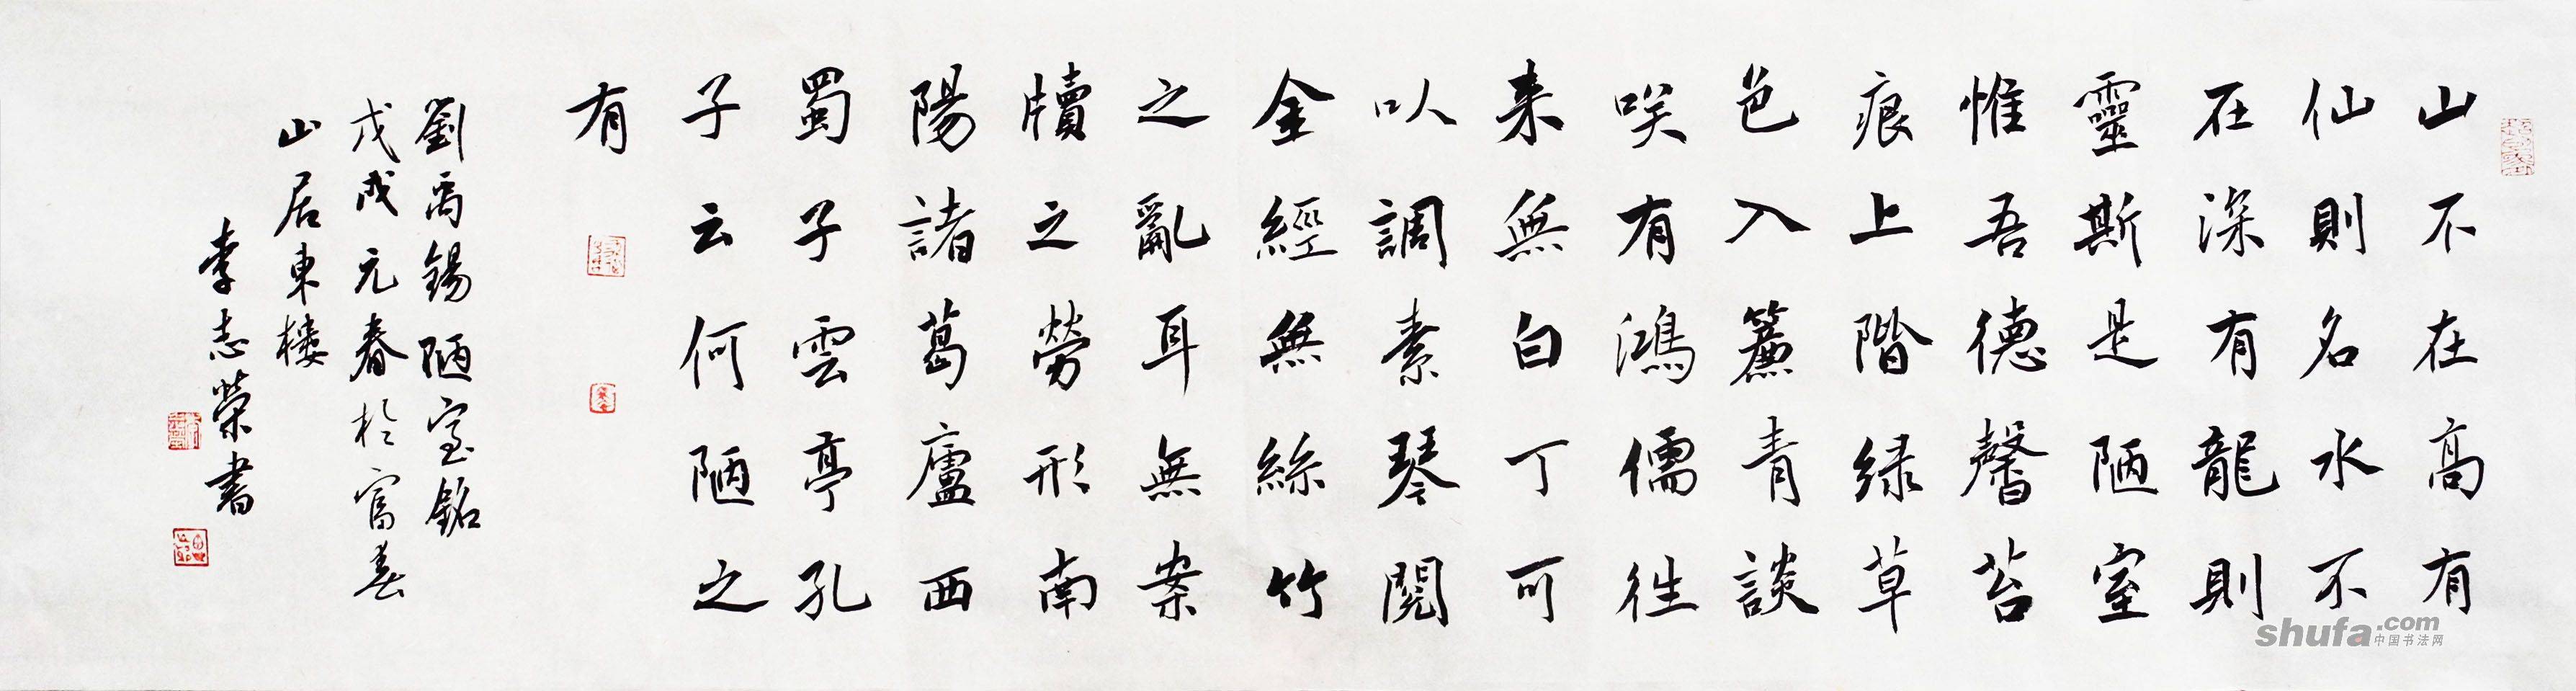 山不在高有
仙則名水不
在深有龍則
靈斯是陋室
惟吾德馨苔
痕上階緑草
色入簾青談
咲有鴻儒往
来無白丁可
以調素琴閱
金經無絲竹
之亂耳無案
牘之勞形南
陽諸葛廬西
蜀子雲亭孔
子云何陋之
有
劉禹錫陋室銘
戊戌元春於富春
山居東樓
李志榮書
shufa.com
中国书法网